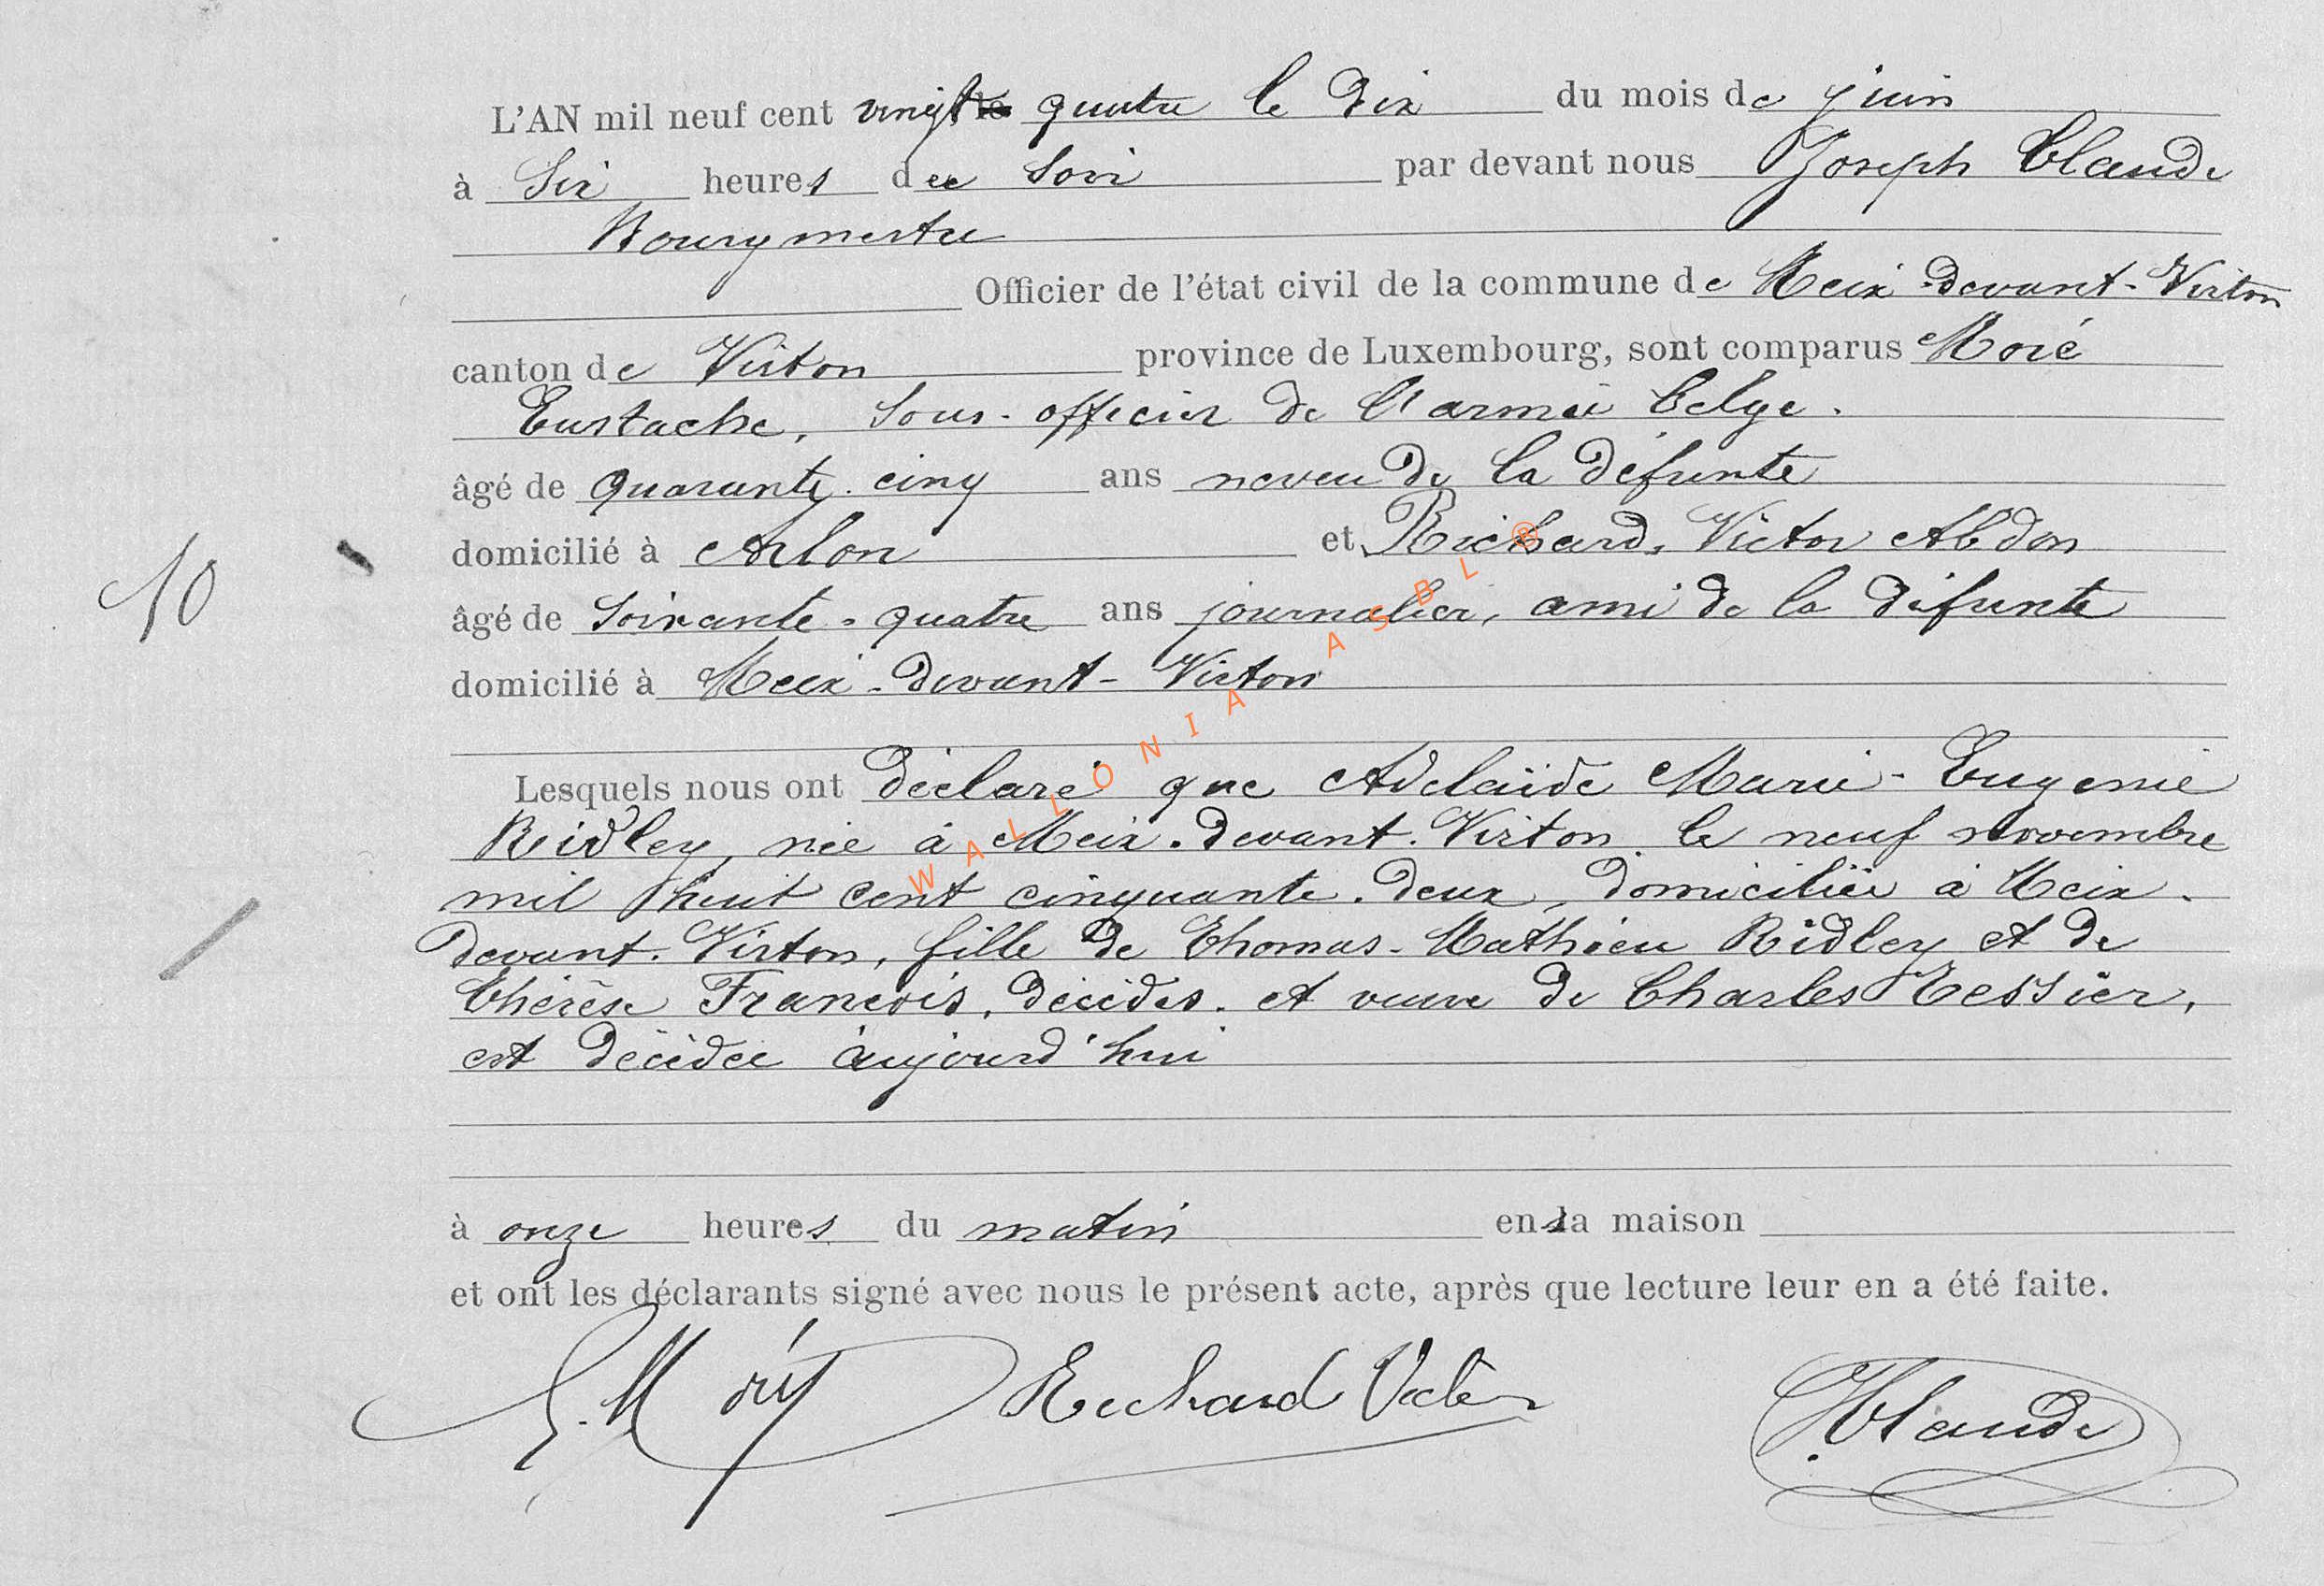 L'AN mil neuf cent vingt quatre le dix du mois de juin
à Six heures du Soir par devant nous Joseph Claude
Bourgmestre
Officier de l'état civil de la commune de Meix-devant-Virton
canton de Virton province de Luxembourg, sont comparus Moïé
Eustache, Sous-officier de l'armée belge.
âgé de quarante-cinq ans neveu de la défunte
domicilié à Arlon et Richard, Victor Abdon
âgé de Soixante-quatre ans journalier, ami de la défunte
domicilié à Meix-devant-Virton
Lesquels nous ont déclaré que Adelaïde Marie-Eugenie
Ridley, née à Meix-devant-Virton le neuf novembre
mil huit cent cinquante-deux, domiciliée à Meix-
devant-Virton, fille de Thomas-Mathieu Ridley et de
Thérèse François, décédés, et veuve de Charles Tessier,
est décédée aujourd'hui
à onze heures du matin en sa maison
et ont les déclarants signé avec nous le présent acte, après que lecture leur en a été faite.
Richard Victor
JClaude
10
WALLONIA ASBL ®